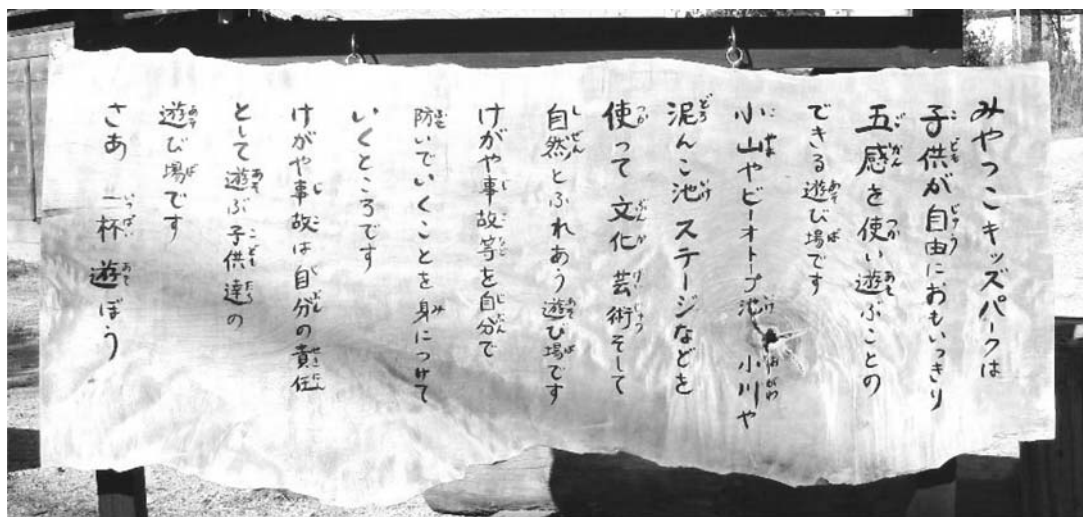 みやっこキッズパークは
子供が自由におもいっきり
五感を使い遊ぶことの
できる遊び場です
小山やビーオトープ池 小川や
泥んこ池 ステージなどを
使って 文化 芸術そして
自然とふれあう遊び場です
けがや事故等を自分で
防いでいくことを身につけて
いくところです
けがや事故は自分の責任
として遊ぶ子供達の
遊び場です
さあ 一杯 遊ぼう